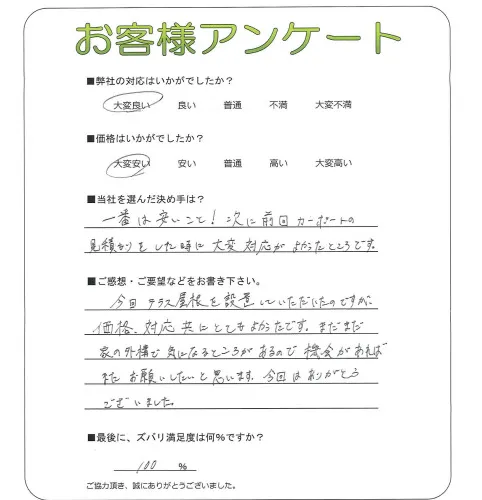 お客様アンケート
■弊社の対応はいかがでしたか？
大変良い 良い 普通 不満 大変不満
■価格はいかがでしたか？
大変安い 安い 普通 高い 大変高い
■当社を選んだ決め手は？
一番は安いこと！次に前回カーポートの
見積りをした時に大変対応がよかったところです。
■ご感想・ご要望などをお書き下さい。
今回テラス屋根を設置していただいたのですが、
価格、対応共にとてもよかったです。まだまだ
家の外構で気になるところがあるので機会があれば
またお願いしたいと思います。今回はありがとう
ございました。
■最後に、ズバリ満足度は何%ですか？
100 %
ご協力頂き、誠にありがとうございました。